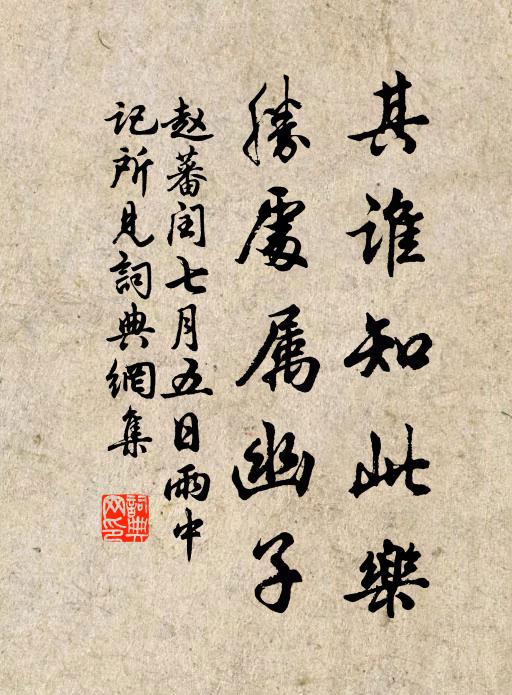 其谁知此樂
勝處属幽子
赵蕃闰七月五日雨中
记所見詞典網集
詞典
网印